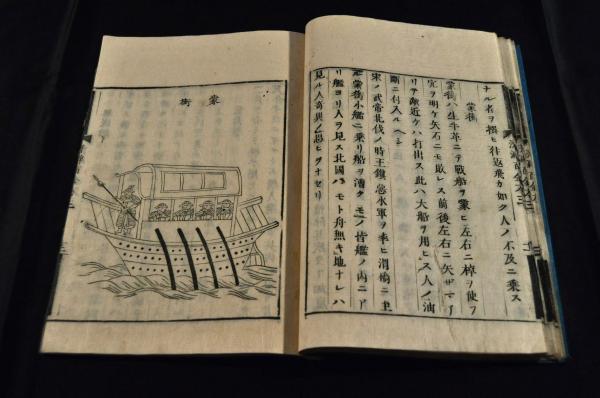 ナル者ヲ撰ヒ往返飛カ如ク人ノ不及ニ乗ス
蒙衝
蒙衝ハ生牛革ニテ戦船ヲ蒙ヒ左右ニ棹ヲ使フ
穴ヲ明ケ矢石ニモ敗レス前後左右ニ矢
リテ敵近ケハ打出ス此ハ大船ヲ用ヒス人ノ油
断ニ付入ルヘシ
宋ノ武帝北伐ノ時王鎮悪水軍ヲ率ヒ渭橋ニ
蒙衝小艦ニ乗リ船ヲ漕クモノ皆艦ノ内ニア
リ艦ヨリ人ヲ見ス北國ハモト舟無キ地ナレハ
見ル人奇異ノ思ヒヲナセリ
蒙衝